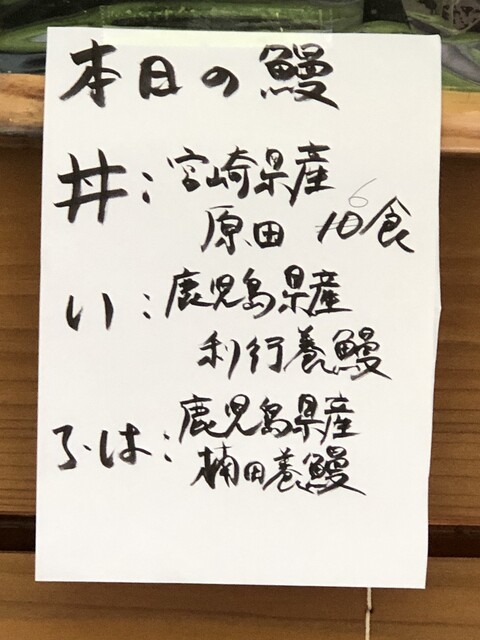 本日の鰻
丼：宮崎県産
6
原田 10食
い：鹿児島県産
利行養鰻
ろ・は：鹿児島県産
楠田養鰻